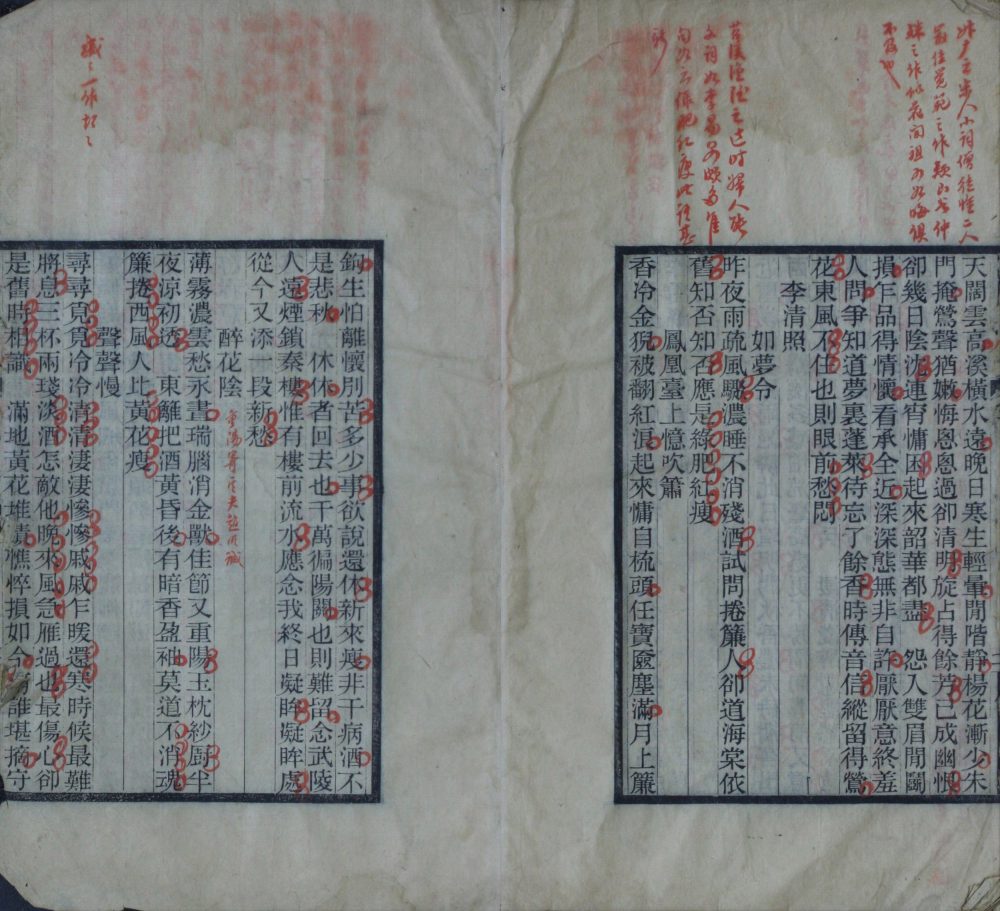 宋人小詞僧徒惟二人
最佳覺範之作類山谷仲
殊之作似花間祖可如晦俱
不及也
苕溪漁隱云近時婦人能
文詞如李易安頗多佳
句如云綠肥紅瘦此語甚
新
天闊雲高溪橫水遠晚日寒生輕暈閒階靜楊花漸少朱
門掩鶯聲猶嫩悔悤悤過卻清明旋占得餘芳已成幽恨
卻幾日陰沈連宵慵困起來韶華都盡 怨入雙眉閒鬬
損乍品得情懷看承全近深深態無非自許厭厭意終羞
人問爭知道夢裏蓬萊待忘了餘香時傳音信縱留得鶯
花東風不住也則眼前愁悶
李清照
如夢令
昨夜雨疏風驟濃睡不消殘酒試問捲簾人卻道海棠依
舊知否知否應是綠肥紅瘦
鳳凰臺上憶吹簫
香冷金猊被翻紅浪起來慵自梳頭任寶奩塵滿月上簾
鉤生怕離懷別苦多少事欲說還休新來瘦非干病酒不
是悲秋 休休者回去也千萬徧陽關也則難留念武陵
人遠煙鎖秦樓惟有樓前流水應念我終日凝眸凝眸處
從今又添一段新愁
醉花陰 重陽寄夫趙明誠
薄霧濃雲愁永晝瑞腦消金獸佳節又重陽玉枕紗厨半
夜涼初透 東籬把酒黃昏後有暗香盈袖莫道不消魂
簾捲西風人比黃花瘦
聲聲慢
尋尋覓覓冷冷清清淒淒慘慘戚戚乍暖還寒時候最難
將息三杯兩琖淡酒怎敵他晚來風急雁過也最傷心卻
是舊時相識 滿地黃花堆積憔悴損如今有誰堪摘守